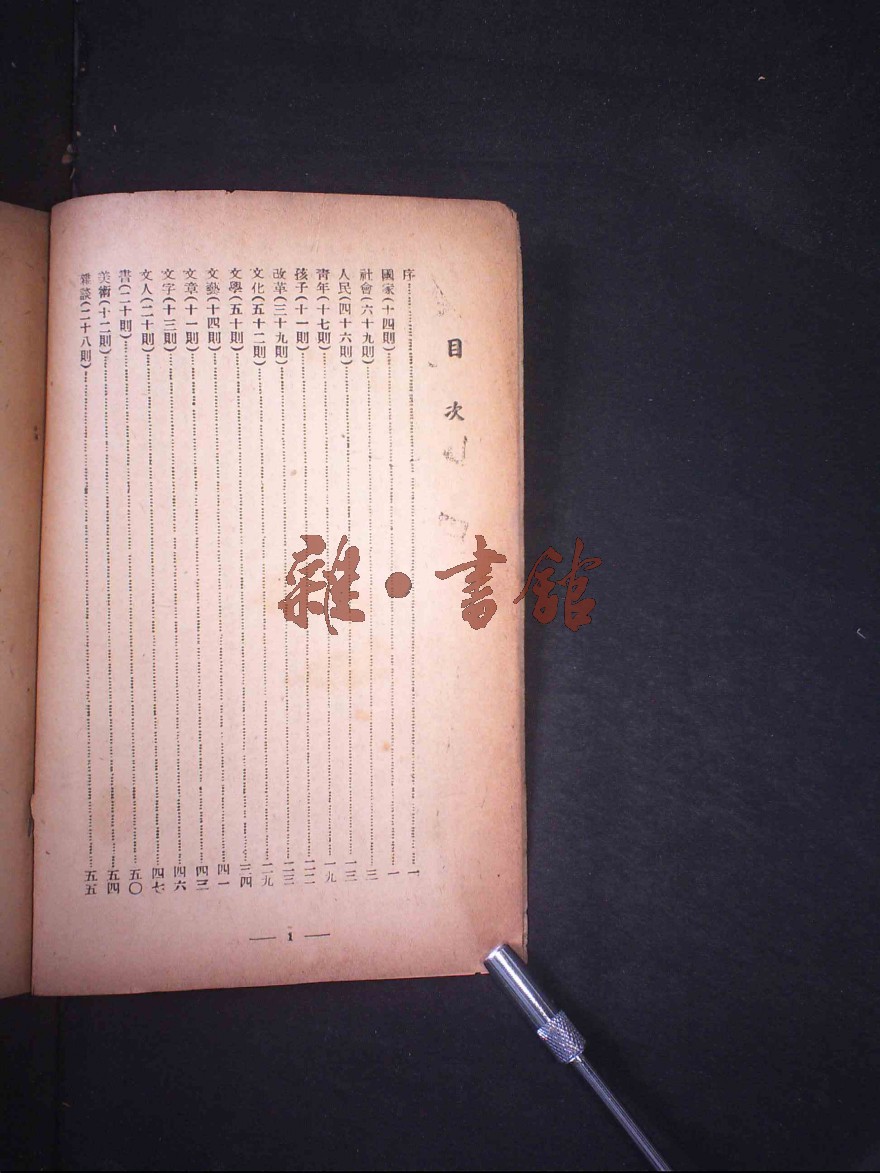 目次
序……一
國家(十四則)……一
社會(六十九則)……三
人民(四十六則)……一三
青年(十七則)……一九
孩子(十一則)……二二
改革(三十九則)……二三
文化(五十二則)……二九
文學(五十則)……三四
文藝(十四則)……四一
文章(十一則)……四三
文字(十三則)……四六
文人(二十則)……四七
書(二十則)……五〇
美術(十二則)……五四
雜談(二十八則)……五五
— 1 —
雜•書館